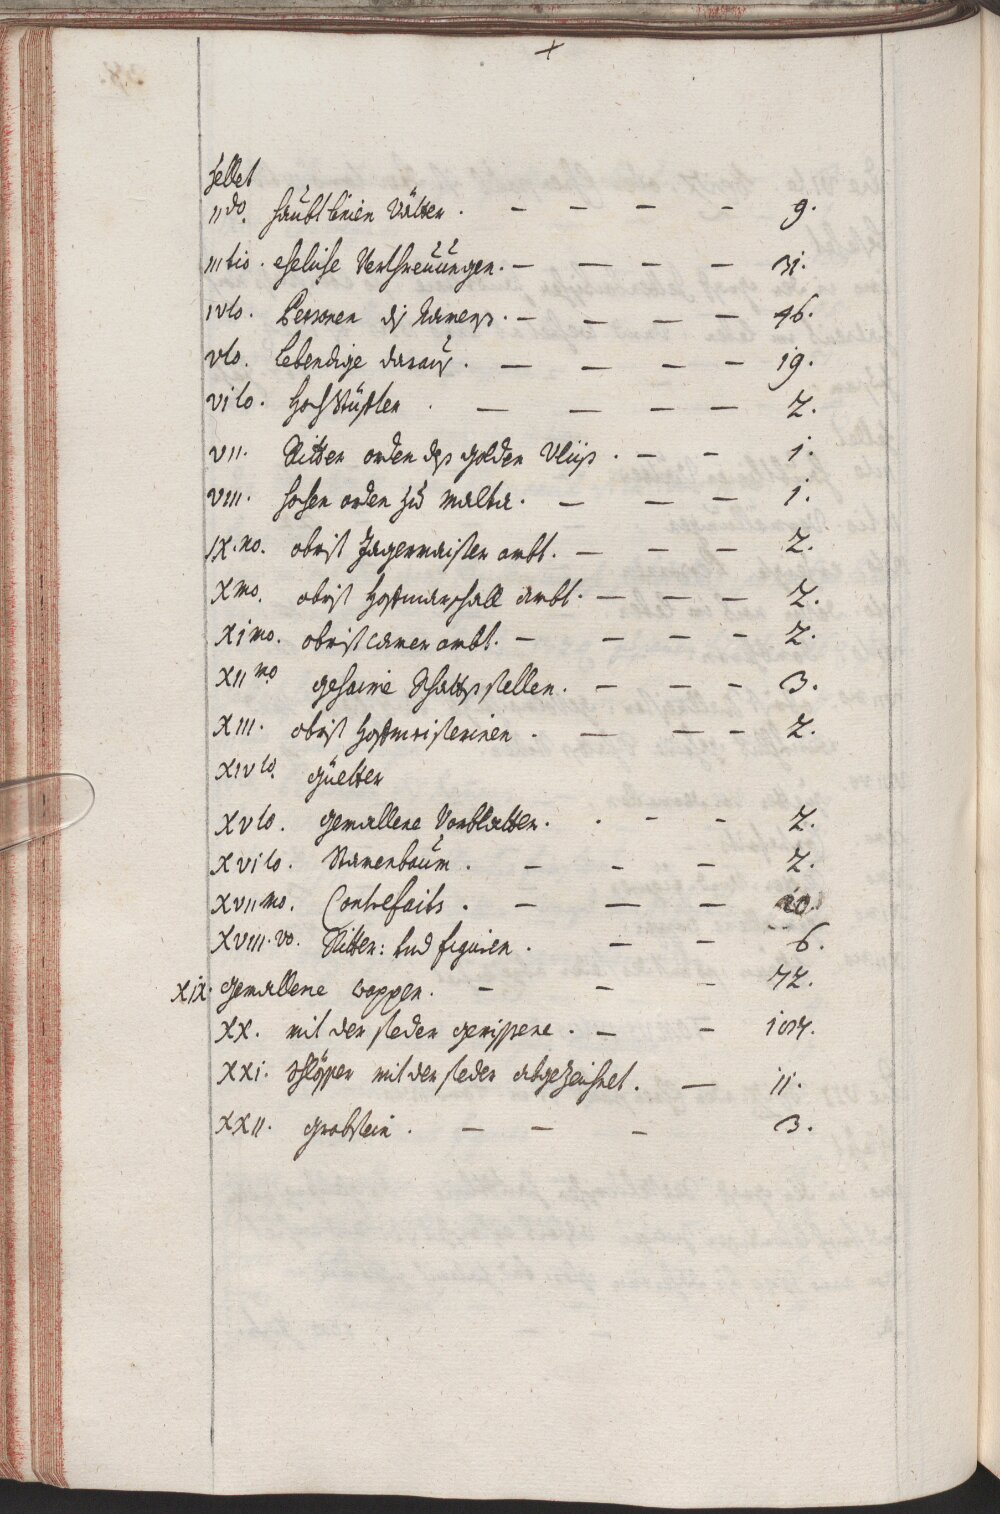 +
zellet
IIdo. haubt linien Vätter . — — — — 9.
IIItio. eheliche Verthreüungen. — — — — 31.
IVto. Personen dis Namens. — — — — 46.
Vto. lebendige daraus. — — — — 19.
VIto. Hochstüffter . — — — — 2.
VII. Ritter orden des golden Vliis . — — 1.
VIII. hohen orden zu Malta. — — — 1.
IX.no. obrist Jägermaister ambt. — — — 2.
Xmo. obrist Hoffmarschall ambt. — — — 2.
XImo. obrist camer ambt. — — — — 2.
XIImo gehaime Rhatts stellen. — — — 3.
XIII. obrist Hoffmeisterinen . — — — 2.
XIVto. güetter
XVto. gemallene Vorblatter. . - - 2.
XVIto. Stamenbaum . — — — 2.
XVIImo. Contrefaits . — — — 20.
XVIII.vo. Ritter: und figuren . — — 6.
XIX. gemallene wappen. — — — 72.
XX. mit der feder gerissene . — — 107.
XXI. Schlösser mit der feder abgezeichnet. — 11.
XXII. grabstein . — — — 3.